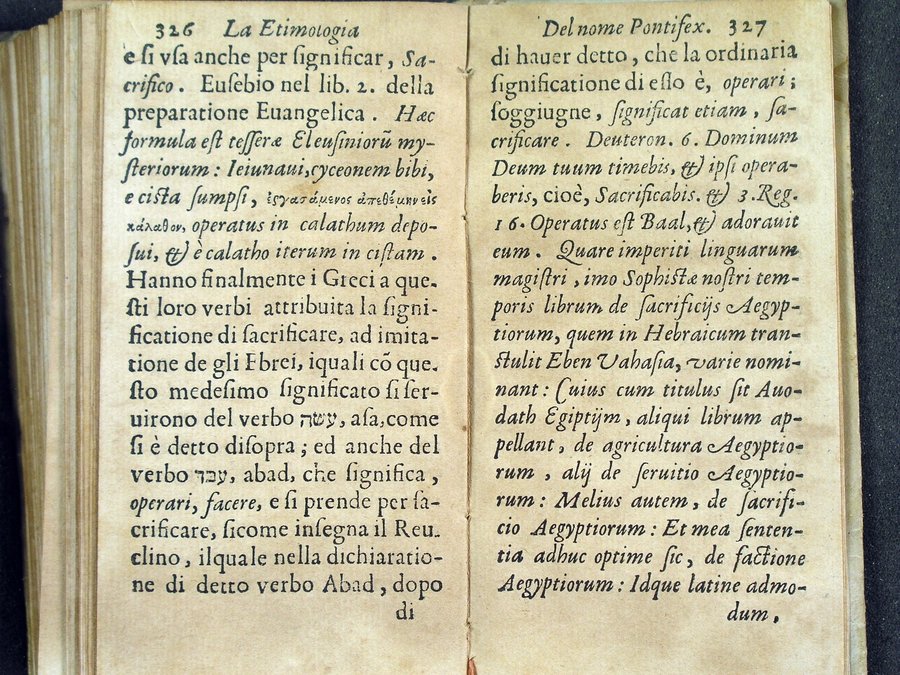 326 La Etimologia
e si vsa anche per significar, Sa-
crifico. Eusebio nel lib. 2. della
preparatione Euangelica. Hæc
formula est tesseræ Eleusiniorū my-
steriorum: Ieiunaui, cyceonem bibi,
e cista sumpsi, ἐργασάμενος ἀπεθέμην εἰς
κάλαθον, operatus in calathum depo-
sui, & è calatho iterum in cistam.
Hanno finalmente i Greci a que-
sti loro verbi attribuita la signi-
ficatione di sacrificare, ad imita-
tione de gli Ebrei, iquali cō que-
sto medesimo significato si ser-
uirono del verbo עשה, asa, come
si è detto disopra; ed anche del
verbo עבד, abad, che significa,
operari, facere, e si prende per sa-
crificare, sicome insegna il Reu-
clino, ilquale nella dichiaratio-
ne di detto verbo Abad, dopo
di
Del nome Pontifex. 327
di hauer detto, che la ordinaria
significatione di esso è, operari;
soggiugne, significat etiam, sa-
crificare. Deuteron. 6. Dominum
Deum tuum timebis, & ipsi opera-
beris, cioè, Sacrificabis. & 3. Reg.
16. Operatus est Baal, & adorauit
eum. Quare imperiti linguarum
magistri, imo Sophistæ nostri tem-
poris librum de sacrificijs Aegyp-
tiorum, quem in Hebraicum tran-
stulit Eben Vahasia, varie nomi-
nant: Cuius cum titulus sit Auo-
dath Egiptijm, aliqui librum ap-
pellant, de agricultura Aegyptio-
rum, alij de seruitio Aegyptio-
rum: Melius autem, de sacrifi-
cio Aegyptiorum: Et mea senten-
tia adhuc optime sic, de factione
Aegyptiorum: Idque latine admo-
dum,